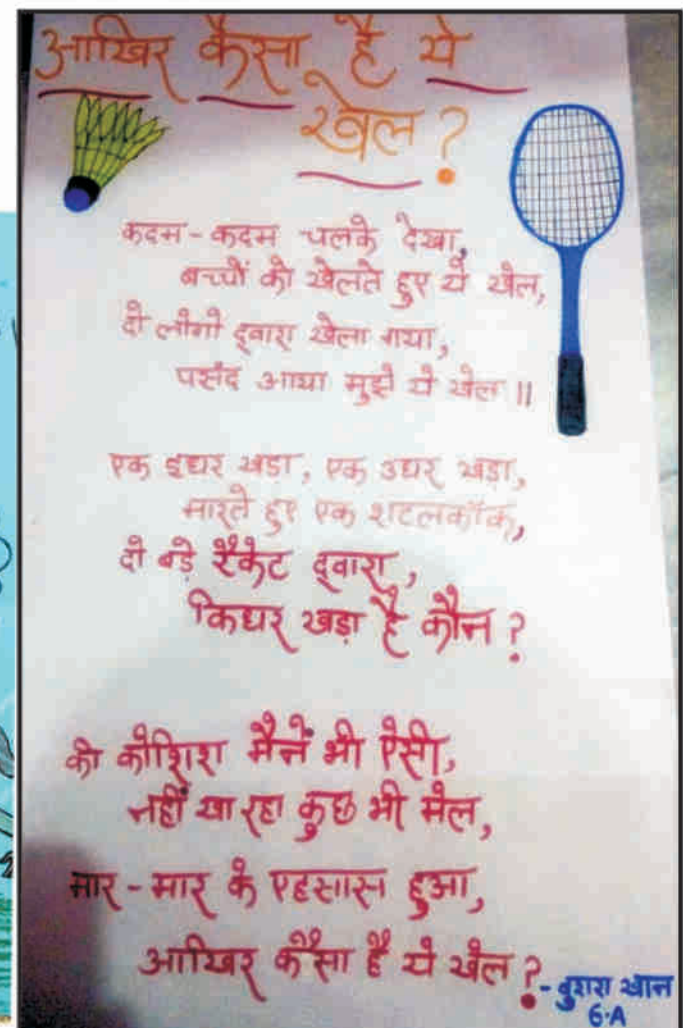 आखिर कैसा है ये
खेल ?
कदम - कदम चलके देखा,
बच्चों को खेलते हुए ये खेल,
दो लोगो द्वारा खेला गया,
पसंद आया मुझे ये खेल ॥
एक इधर खड़ा, एक उधर खड़ा,
मारते हुए एक शटलकॉक,
दो बड़े रैकेट द्वारा,
किधर खड़ा है कौन ?
की कोशिश मैनें भी ऐसी,
नहीं खा रहा कुछ भी मेल,
मार - मार के एहसास हुआ,
आखिर कैसा है ये खेल ?
- बुशरा खान
6-A